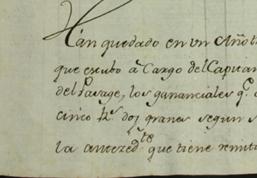 Han quedado en un Año
que estubo a Cargo del Capitan
del Parage, los gananciales q.e
cinco rr.s dos granos segun
la anteced.te que tiene remit